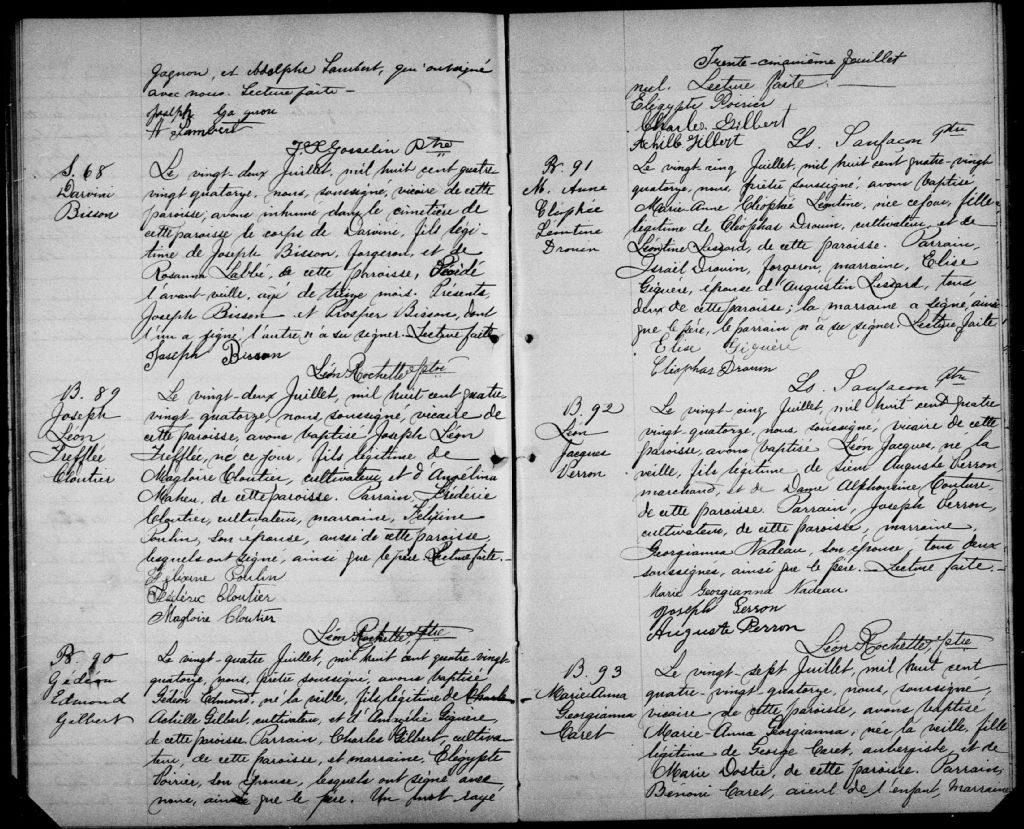 Gagnon, et Adolphe Lambert, qui ont signé
avec nous. Lecture faite -
Joseph Gagnon
A Lambert
J. P. Gosselin Ptre
S. 68
Darvini
Bisson
Le vingt-deux Juillet, mil huit cent quatre
vingt quatorze, nous, soussigné, vicaire de cette
paroisse, avons inhumé dans le cimetière de
cette paroisse le corps de Darvini, fils légi-
time de Joseph Bisson, forgeron, et de
Rosanna Labbé, de cette paroisse, décédé
l'avant-veille, âgé de treize mois. Présents,
Joseph Bisson et Prosper Bisson, dont
l'un a signé, l'autre n'a su signer. Lecture faite
Joseph Bisson
Léon Rochette, ptre
B. 89
Joseph
Léon
Trefflée
Cloutier
Le vingt-deux Juillet, mil huit cent quatre
vingt quatorze, nous, soussigné, vicaire de
cette paroisse, avons baptisé Joseph Léon
Trefflée, né ce jour, fils légitime de
Magloire Cloutier, cultivateur, et d'Angélina
Maheu, de cette paroisse. Parrain, Fréderic
Cloutier, cultivateur, marraine, Félixine
Poulin, son épouse, aussi de cette paroisse,
lesquels ont signé, ainsi que le père. Lecture faite. -
Félixine Poulin
Fréderic Cloutier
Magloire Cloutier
Léon Rochette, ptre
B. 90
Gédéon
Edmond
Gilbert
Le vingt-quatre Juillet, mil huit cent quatre-vingt
quatorze, nous, prêtre soussigné, avons baptisé
Gédéon Edmond, né la veille, fils légitime de
Achille Gilbert, cultivateur, et d'Amélie Giguère
de cette paroisse. Parrain, Charles Gilbert, cultiva-
teur, de cette paroisse, et marraine, Elégypte
Poirier, son épouse, lesquels ont signé avec
nous, ainsi que le père. Un mot rayé
Trente-cinquième feuillet
nul. Lecture faite.
Elégypte Poirier
Charles Gilbert
Achille Gilbert
Ls. Sanfaçon Ptre
B. 91
M. Anne
Cléophée
Léontine
Drouin
Le vingt cinq Juillet, mil huit cent quatre-vingt
quatorze, nous, prêtre soussigné, avons baptisé
Marie-Anne Cléophée Léontine, née ce jour, fille
légitime de Cléophas Drouin, cultivateur, et de
Léontine Lessard, de cette paroisse. Parrain,
Israël Drouin, forgeron, marraine, Elise
Giguère, épouse d'Augustin Lessard, tous
deux de cette paroisse; la marraine a signé, ainsi
que le père, le parrain n'a su signer. Lecture faite
Elise Giguère
Cléophas Drouin
Ls. Sanfacon Ptre
B. 92
Léon
Jacques
Perron
Le vingt-cinq Juillet, mil huit cent quatre
vingt quatorze, nous, soussigné, vicaire de cette
paroisse, avons baptisé Léon Jacques, né la
veille, fils légitime de Sieur Auguste Perron,
marchand, et de Dame Alphonsine Couture,
de cette paroisse. Parrain, Joseph Perron,
cultivateur, de cette paroisse, marraine,
Georgianna Nadeau, son épouse, tous deux
soussignés, ainsi que le père. Lecture faite. -
Marie Georgianna Nadeau
Joseph Perron
Auguste Perron
Léon Rochette, ptre
B. 93
Marie Anna
Georgianna
Caret
Le vingt-sept Juillet, mil huit cent
quatre-vingt-quatorze, nous, soussigné,
vicaire de cette paroisse, avons baptisé
Marie-Anna Georgianna, née la veille, fille
légitime de George Caret, aubergiste, et de
Marie Dostie, de cette paroisse. Parrain,
Benoni Caret, aïeul de l'enfant, marraine